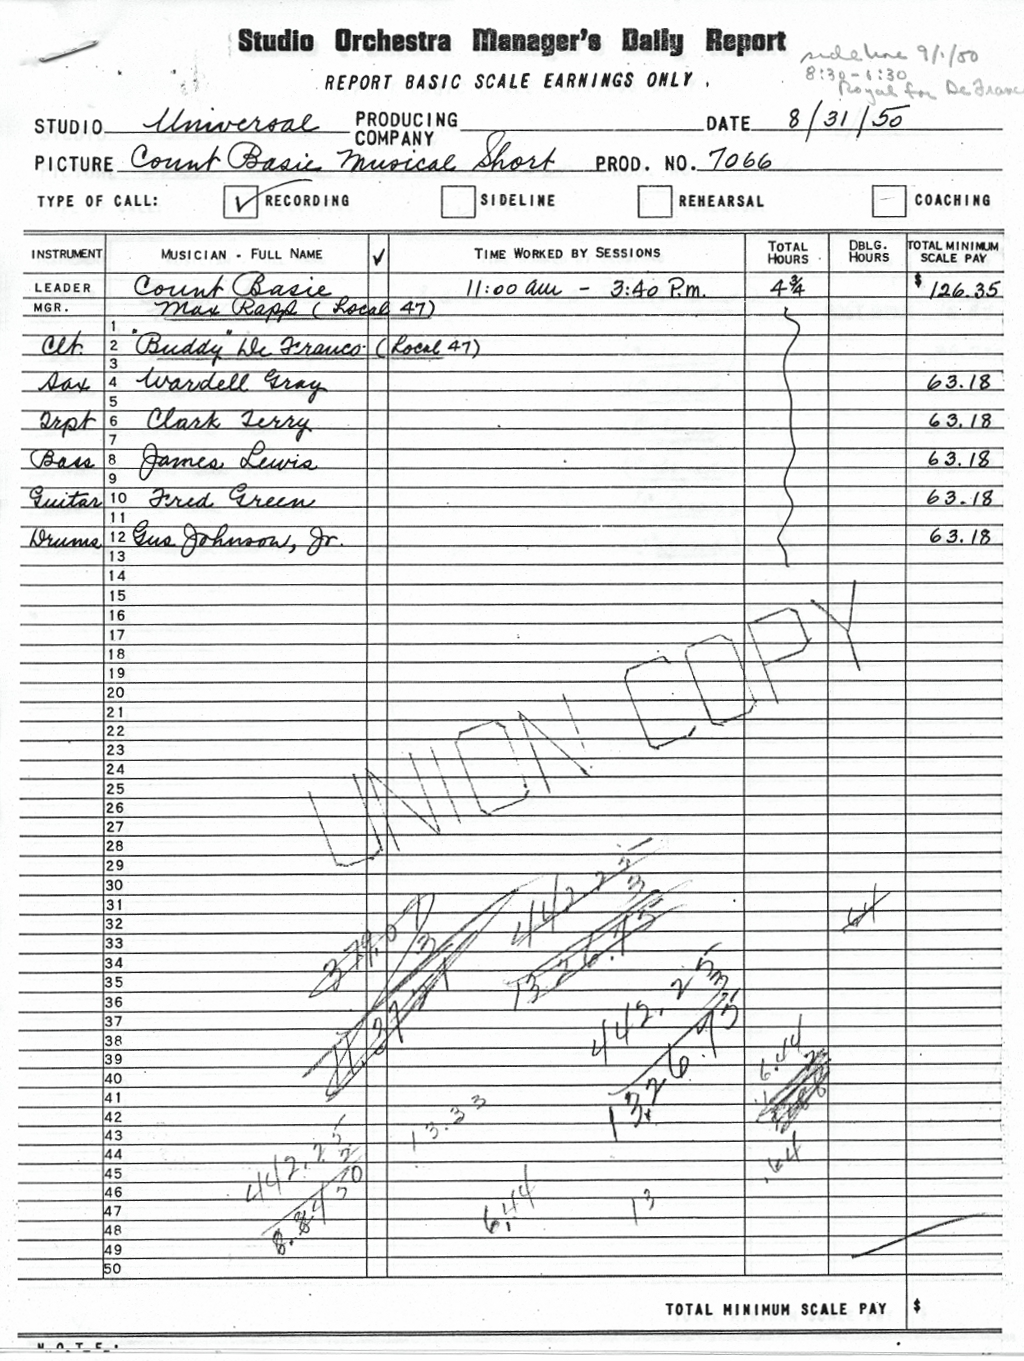 Studio Orchestra Manager's Daily Report
sideline 9/1/50
8:30-1:30
Royal for De Franco
REPORT BASIC SCALE EARNINGS ONLY.
STUDIO Universal PRODUCING COMPANY DATE 8/31/50
PICTURE Count Basie Musical Short PROD. NO. 7066
TYPE OF CALL: ✓ RECORDING SIDELINE REHEARSAL - COACHING
INSTRUMENT MUSICIAN - FULL NAME ✓ TIME WORKED BY SESSIONS TOTAL HOURS DBLG. HOURS TOTAL MINIMUM SCALE PAY
LEADER Count Basie 11:00 am - 3:40 P.m. 4 3/4 $ 126.35
MGR. Max Rapp (Local 47)
1
Clt. 2 "Buddy" De Franco (Local 47)
3
Sax 4 Wardell Gray 63.18
5
Trpt 6 Clark Terry 63.18
7
Bass 8 James Lewis 63.18
9
Guitar 10 Fred Green 63.18
11
Drums 12 Gus Johnson, Jr. 63.18
13
14
15
16
17
18
19
20
21
22
23
24
25
26
27
28
29
30
31
32
33
34
35
36
37
38
39
40
41
42
43
44
45
46
47
48
49
50
UNION COPY
379.07
3
442.25
3
1326.75
64
442.25
3
1326.75
13.33
6.44
.64
442.25
2
6.44
13
TOTAL MINIMUM SCALE PAY $